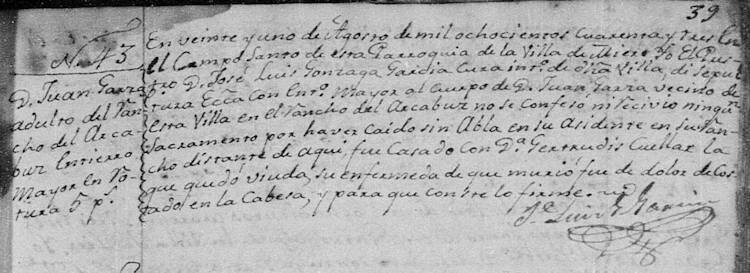 39
No. 43
D. Juan Garza
adulto del Ran-
cho del Arca-
buz Entierro
Mayor en Ra-
tura 5 ps.
En veinte y uno de Agosto de mil ochocientos Cuarenta y tres En
el Campo Santo de esta Parroquia de la Villa de Mier Yo El Pres-
tro D. José Luis Gonzaga Garcia Cura intno. de dha Villa, di Sepul
tura Ecca. Con Ento. Mayor al Cuerpo de D. Juan Garza vecino de
Esta Villa en el Rancho del Arcabuz no se confeso ni recivio ningun
Sacramento por haver Caido sin Abla en su Asidente en su Ran-
cho distante de Aqui, fue Casado con Da. Gertrudis Cuellar la
que quedo viuda, su enfermeda de que murió fue de dolor de Cos
tado, en la Cabesa, y para que conste lo firme.
Je. Luis G. Garcia